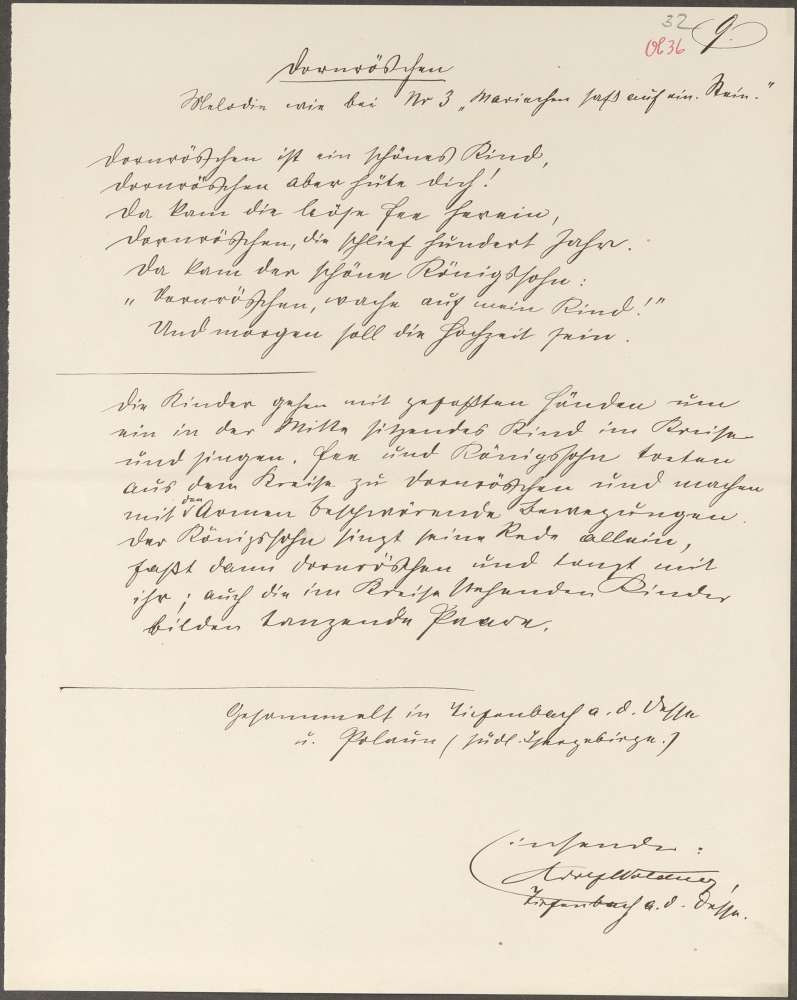 32 9.
Dornröschen
Melodie wie bei Nr 3 „Mariechen saß auf ein. Stein.“
Dornröschen ist ein schönes Kind,
Dornröschen aber hüte dich!
Da kam die böse Fee herein,
Dornröschen, die schlief hundert Jahr.
Da kam der schöne Königssohn:
„Dornröschen, wache auf mein Kind!“
Und morgen soll die Hochzeit sein.
Die Kinder gehen mit gefaßten Händen um
ein in der Mitte sitzendes Kind im Kreise
und singen. Fee und Königssohn treten
aus dem Kreise zu Dornröschen und machen
mit den Armen beschwörende Bewegungen.
Der Königssohn singt seine Rede allein,
faßt dann Dornröschen und tanzt mit
ihr; auch die im Kreise stehenden Kinder
bilden tanzende Paare.
Gesammelt in Tiefenbach a. d. Desse
u. Polaun (südl. Isergebirge.)
Einsender:
Adolf
Tiefenbach a. d. Desse.